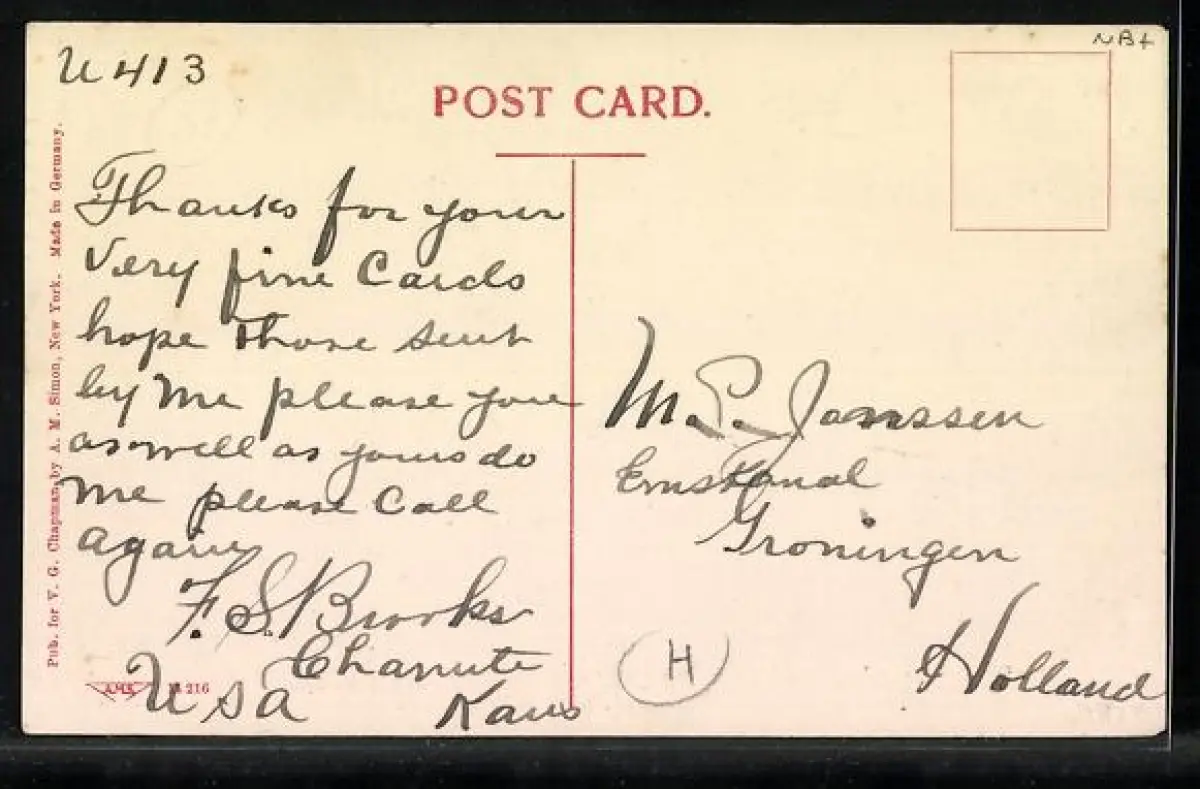 U413
NB+
POST CARD.
Thanks for your
very fine Cards
hope those sent
by me please you
as well as yours do
me please Call
again
F. S. Brooks
Chanute
USA Kans
M. P. Janssen
Emskanal
Groningen
Holland
H
Pub. for V. G. Chapman, by A. M. Simon, New York. Made in Germany.
AMS 216